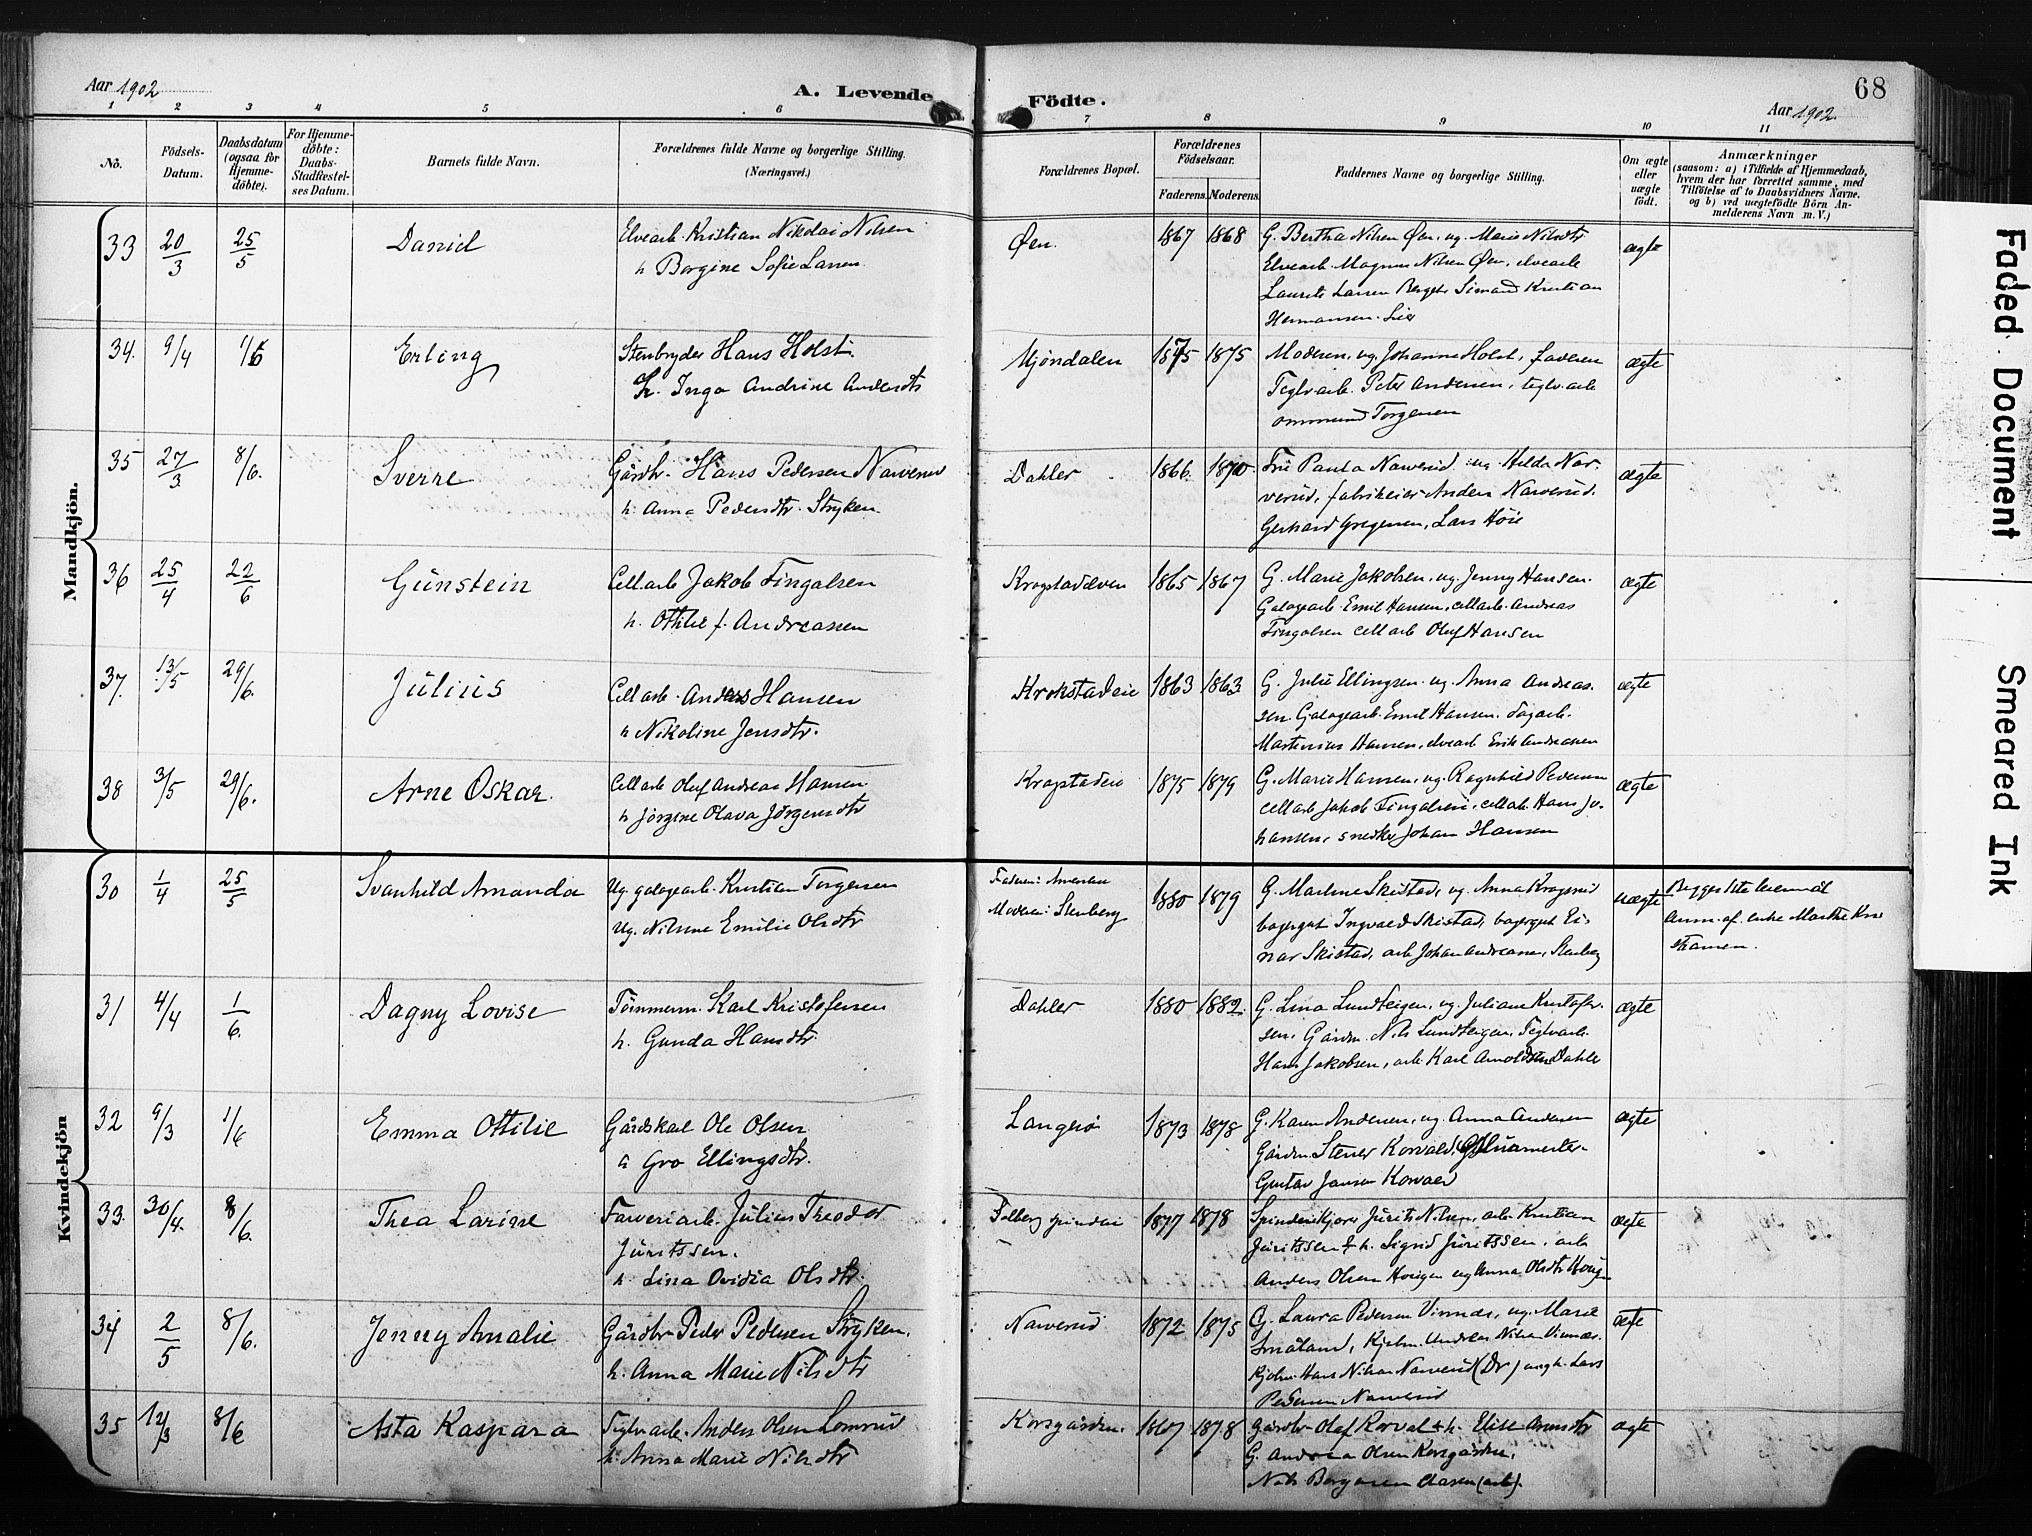 Aar 1902
A. Levende Födte.
68
Aar 1902
1 2 3 4 5 6 7 8 9 10 11
No.
Födsels-Datum.
Daabsdatum (ogsaa for Hjemme-döbte).
For Hjemme-döbte: Daabs-Stadfæstel-ses Datum.
Barnets fulde Navn.
Forældrenes fulde Navne og borgerlige Stilling.
(Næringsvei.)
Forældrenes Bopæl.
Forældrenes Födselsaar.
Faderens. Moderens.
Faddernes Navne og borgerlige Stilling.
Om ægte eller uægte födt.
Anmærkninger
(saasom: a) i Tilfælde af Hjemmedaab, hvem der har forrettet samme, med Tilföielse af to Daabsvidners Navne. og b) ved uægtefödte Börn An-melderens Navn m.V.)
Mandkjön.
33 20/3 25/5 Daniel
Elvearb. Kristian Nikolai Nilsen
h. Bergine Sofie Larsen
Øen. 1867 1868
G. Bertha Nilsen Øen, ug. Marie Nilsdtr
Elvearb. Magnus Nilsen Øen, elvearb
Laurits Larsen Simand Kristian
Hermansen. Lier
ægte
34. 9/4 1/6 Erling
Stenbryder Hans Holst.
h. Inga Andrine Andersdtr
Mjøndalen 1875 1875
Moderen, ug. Johanne Holst, faderen
Teglv.arb. Peter Andersen, teglv.arb
Torgersen
ægte
35 27/3 8/6. Sverre
Gårdbr. Hans Pedersen Narverud
h. Anna Pedersdtr. Stryken
Dahler 1866 1870
Frk Paula Narverud ug Hilda Nar-
verud, fabrikeier Anders Narverud.
Gerhard Gregersen, Lars Höie
ægte
36 25/4 22/6 Gunstein
Cellarb Jakob Fingalsen
h. Othilie f. Andreassen
Krogstadæven 1865 1867
G. Marie Jakobsen, ug. Jenny Hansen.
Galogearb. Emil Hansen, cellarb. Andreas
Fingalsen cellarb Oluf Hansen
ægte
37. 13/5 29/6. Julius
Cellarb. Anders Hansen
h Nikoline Jensdtr.
Krokstadeie 1863 1863
G. Julie Ellingsen. ug. Anna Andreas-
sen. Galogearb. Emil Hansen. dagarb.
Martinius Hansen, elvearb Erik Andreassen
ægte
38 3/5 29/6. Arne Oskar.
Cellarb Oluf Andreas Hansen
h Jörgine Olava Jörgensdtr
Krogstadeie 1875 1879
G. Marie Hansen, ug. Ragnhild Pedersen
cellarb Jakob Fingalsen, cellarb. Hans Jo-
hansen, snedker Johan Hansen
ægte
Kvindekjön
30 1/4 25/5 Svanhild Amanda
Ug. galogearb. Kristian Torgersen
Ug. Nilsine Emilie Olsdtr
Faderen: Amerika
Moderen: Stenberg 1880 1879
G. Marline Skistad, ug. Anna Krogsrud
bagergut Ingvald Skistad, bagergut Ei-
nar Skistad, arb Johan Andreassen, Stenberg
uægte
Begges 1ste leiermål
Anm. af enke Marthe
31 4/4 1/6. Dagny Lovise
Tömmerm. Karl Kristofersen
h. Gunda Hansdtr.
Dahler 1880 1882.
G. Lina Lundteigen, ug. Juliane Kristofer-
sen, Gårdm. Nils Lundteigen, Teglv.arb
Hans Jakobsen, arb. Karl Arnoldsen Dahle
ægte
32 9/3 1/6 Emma Othilie
Gårdskal Ole Olsen
h Gro Ellingsdtr.
Langerö 1873 1878
G. Karen Andersen, ug. Anna Andersen
Gårdm. Stener Korvald,
Gustav Jansen Korvald
ægte
33. 30/4. 8/6. Thea Larine
Farveriarb. Julius Theodor
Juritssen.
h. Lina Ovidia Olsdtr.
Solberg spinderi 1877 1878
Jurits Nilsen, arb. Kristian
Juritssen & h. Sigrid Juritssen, arb
Anders Olsen Horgen ug Anna Olsdtr
ægte
34 2/5 8/6. Jenny Amalie
Gårdbr Peder Pedersen Stryken.
h. Anna Marie Nilsdtr
Narverud 1872 1875
G. Laura Pedersen Vinnæs, ug. Marie
Småland, Kjørm. Andreas Nilsen Vinnæs.
Kjørm. Hans Nilsen Narverud (Dr) ungk. Lars
Pedersen Narverud
ægte
35 12/3 8/6 Asta Kaspara
Teglv.arb. Anders Olsen Lomsrud
h. Anna Marie Nilsdtr
Korsgården. 1867 1878
Gårdbr Olaf Korval & h. Elise
G. Andrea Olsen Korsgården,
Nils Borgersen Aasen (arb).
ægte
Faded Document
Smeared Ink